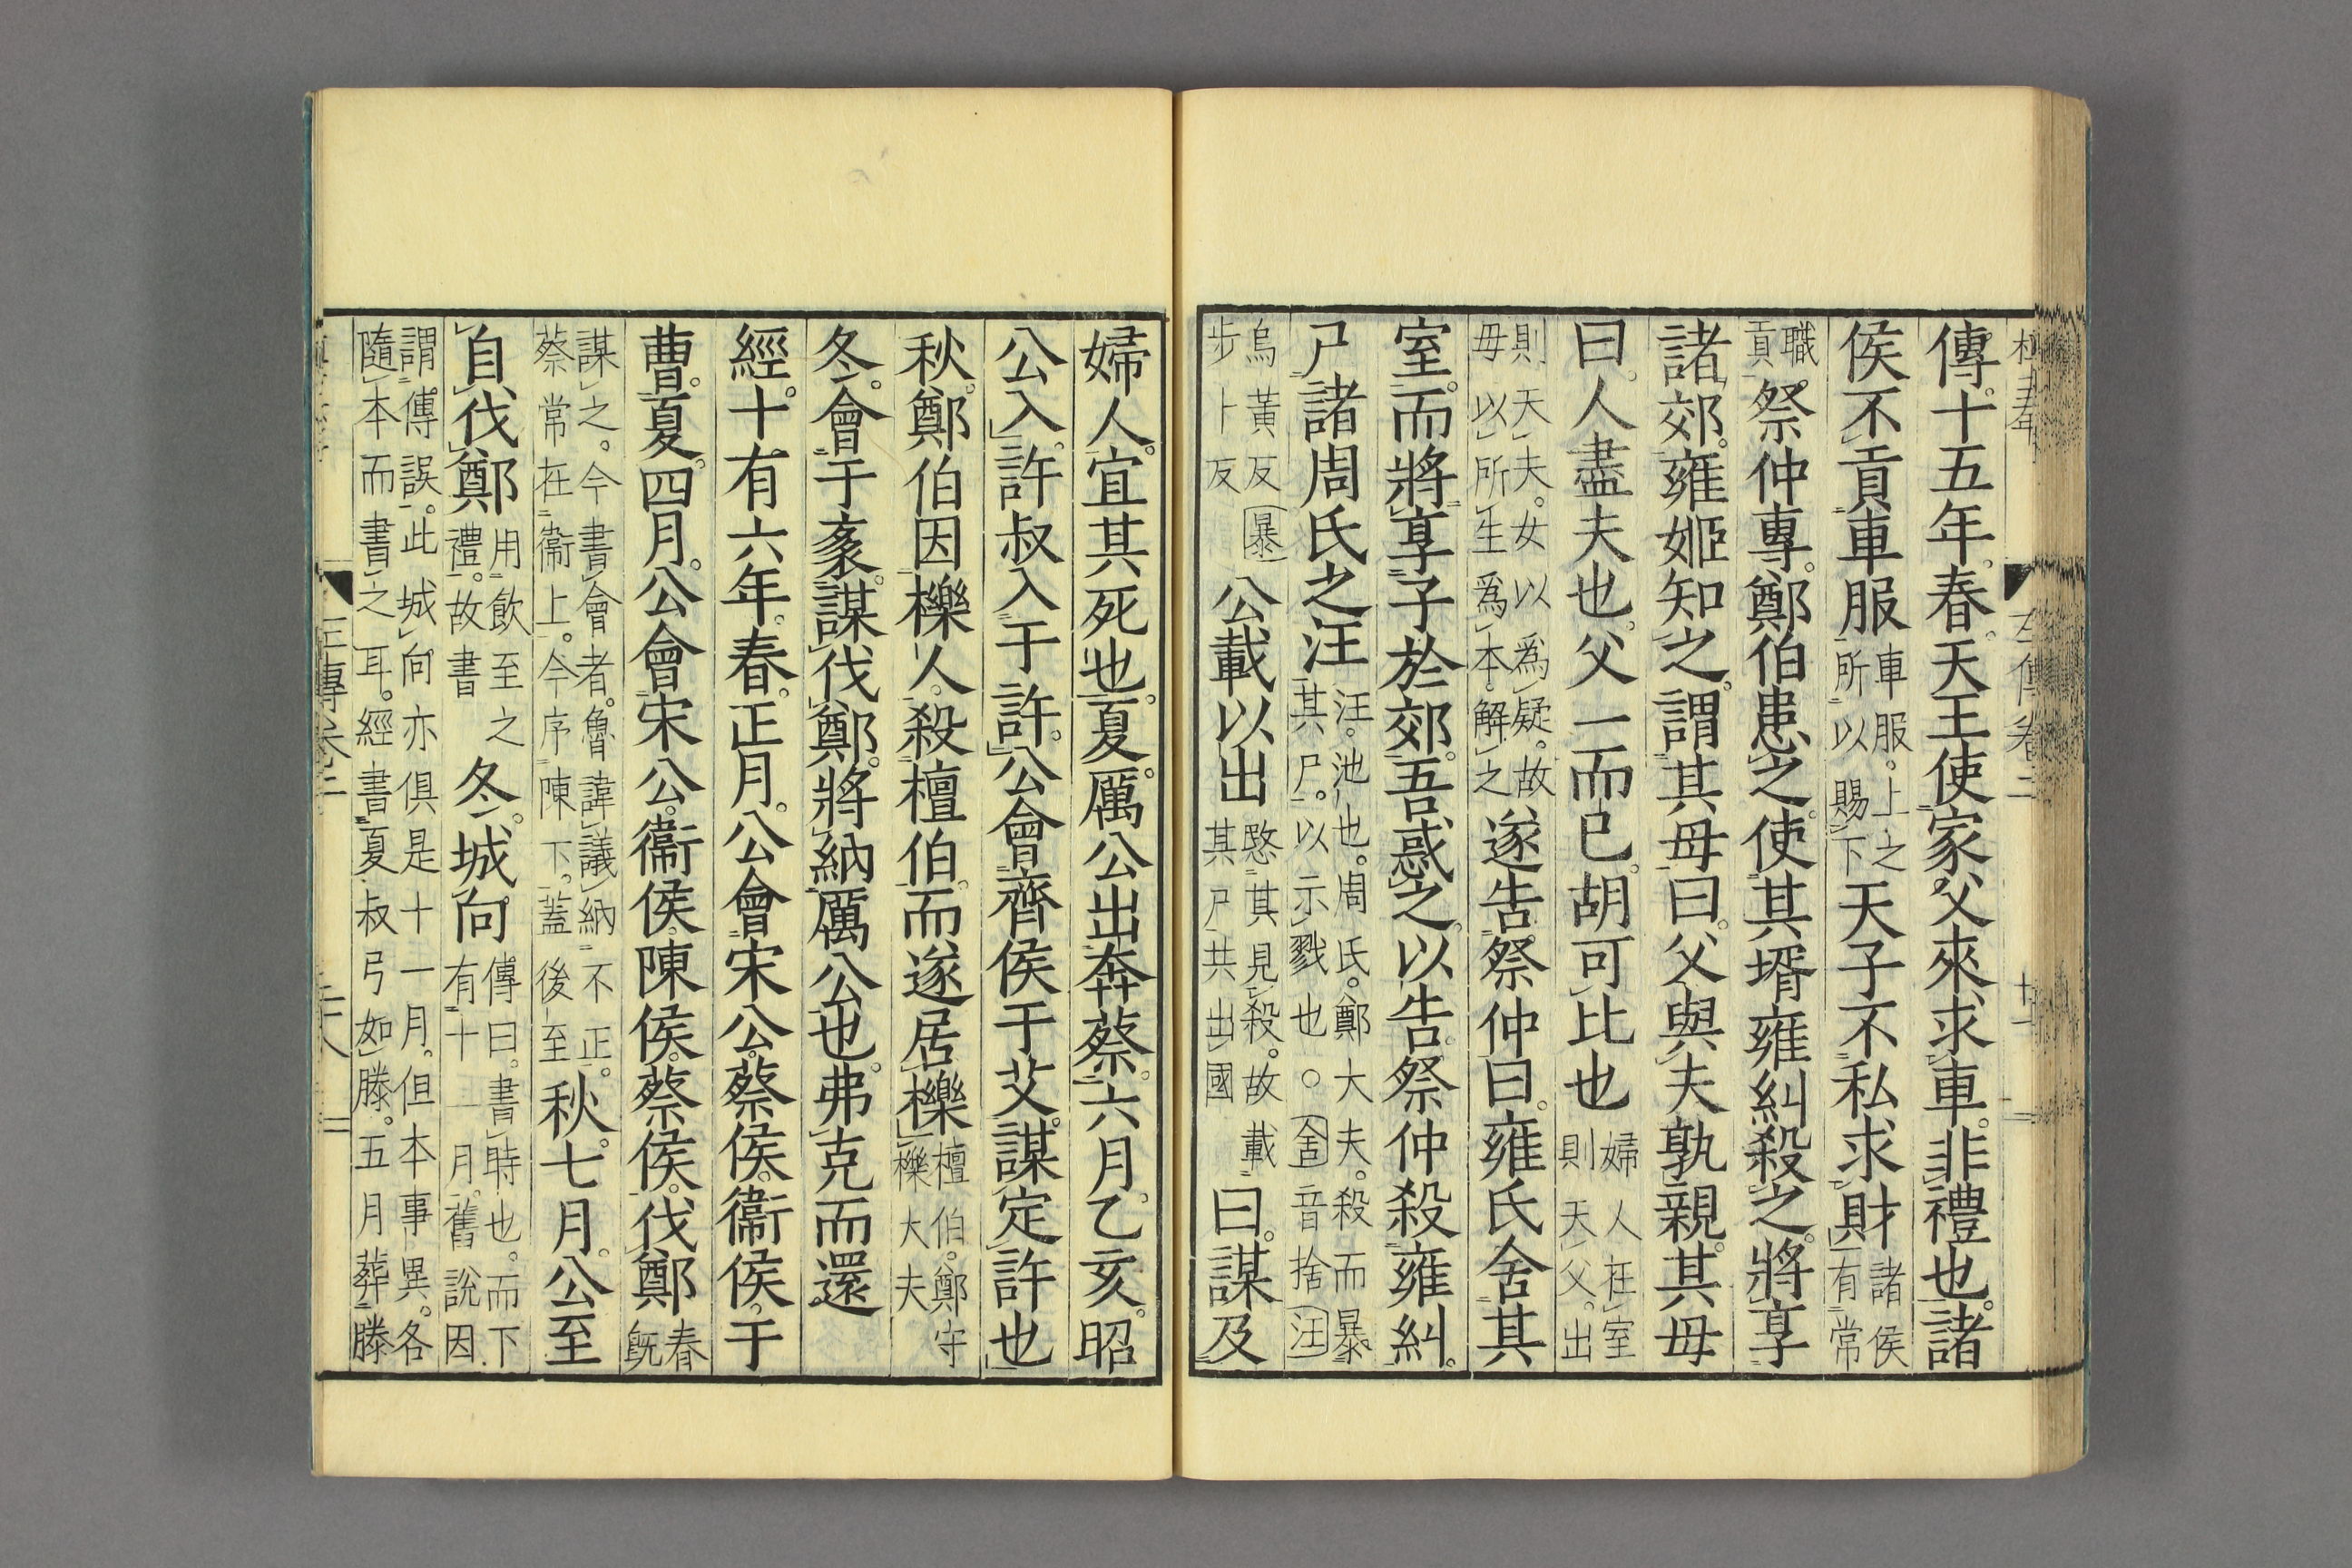 傳。十五年。春。天王使家父來求車。非禮也。諸
侯不貢車服車服。上之所以賜下天子不私求財諸侯有常
職貢。祭仲專。鄭伯患之。使其壻雍糾殺之。將享
諸郊。雍姬知之。謂其母曰。父與夫孰親。其母
曰。人盡夫也。父一而已。胡可比也婦人在室則天父。出
則天夫。女以爲疑。故母以所生爲本。解之遂告祭仲曰。雍氏舍其
室。而將享子於郊。吾惑之。以告。祭仲殺雍糾。
尸諸周氏之汪汪。池也。周氏。鄭大夫。殺而暴其尸。以示戮也。○舍音捨汪
烏黃反暴步卜反公載以出愍其見殺。故載其尸共出國曰。謀及
婦人。宜其死也。夏。厲公出奔蔡。六月。乙亥。昭
公入。許叔入于許。公會齊侯于艾。謀定許也
秋。鄭伯因櫟人。殺檀伯。而遂居櫟檀伯。鄭守櫟大夫
冬。會于袲。謀伐鄭。將納厲公也。弗克而還。
經。十有六年。春。正月。公會宋公。蔡侯。衞侯。于
曹。夏。四月。公會宋公。衞侯。陳侯。蔡侯。伐鄭春既
謀之。今書會者。魯諱議納不正。蔡常在衞上。今序陳下。蓋後至秋。七月。公至
自伐鄭用飮至之禮。故書冬。城向傳曰。書時也。而下有十一月。舊說因
謂傳誤。此城向亦俱是十一月。但本事異。各隨本而書之耳。經書夏叔弓如滕。五月葬滕